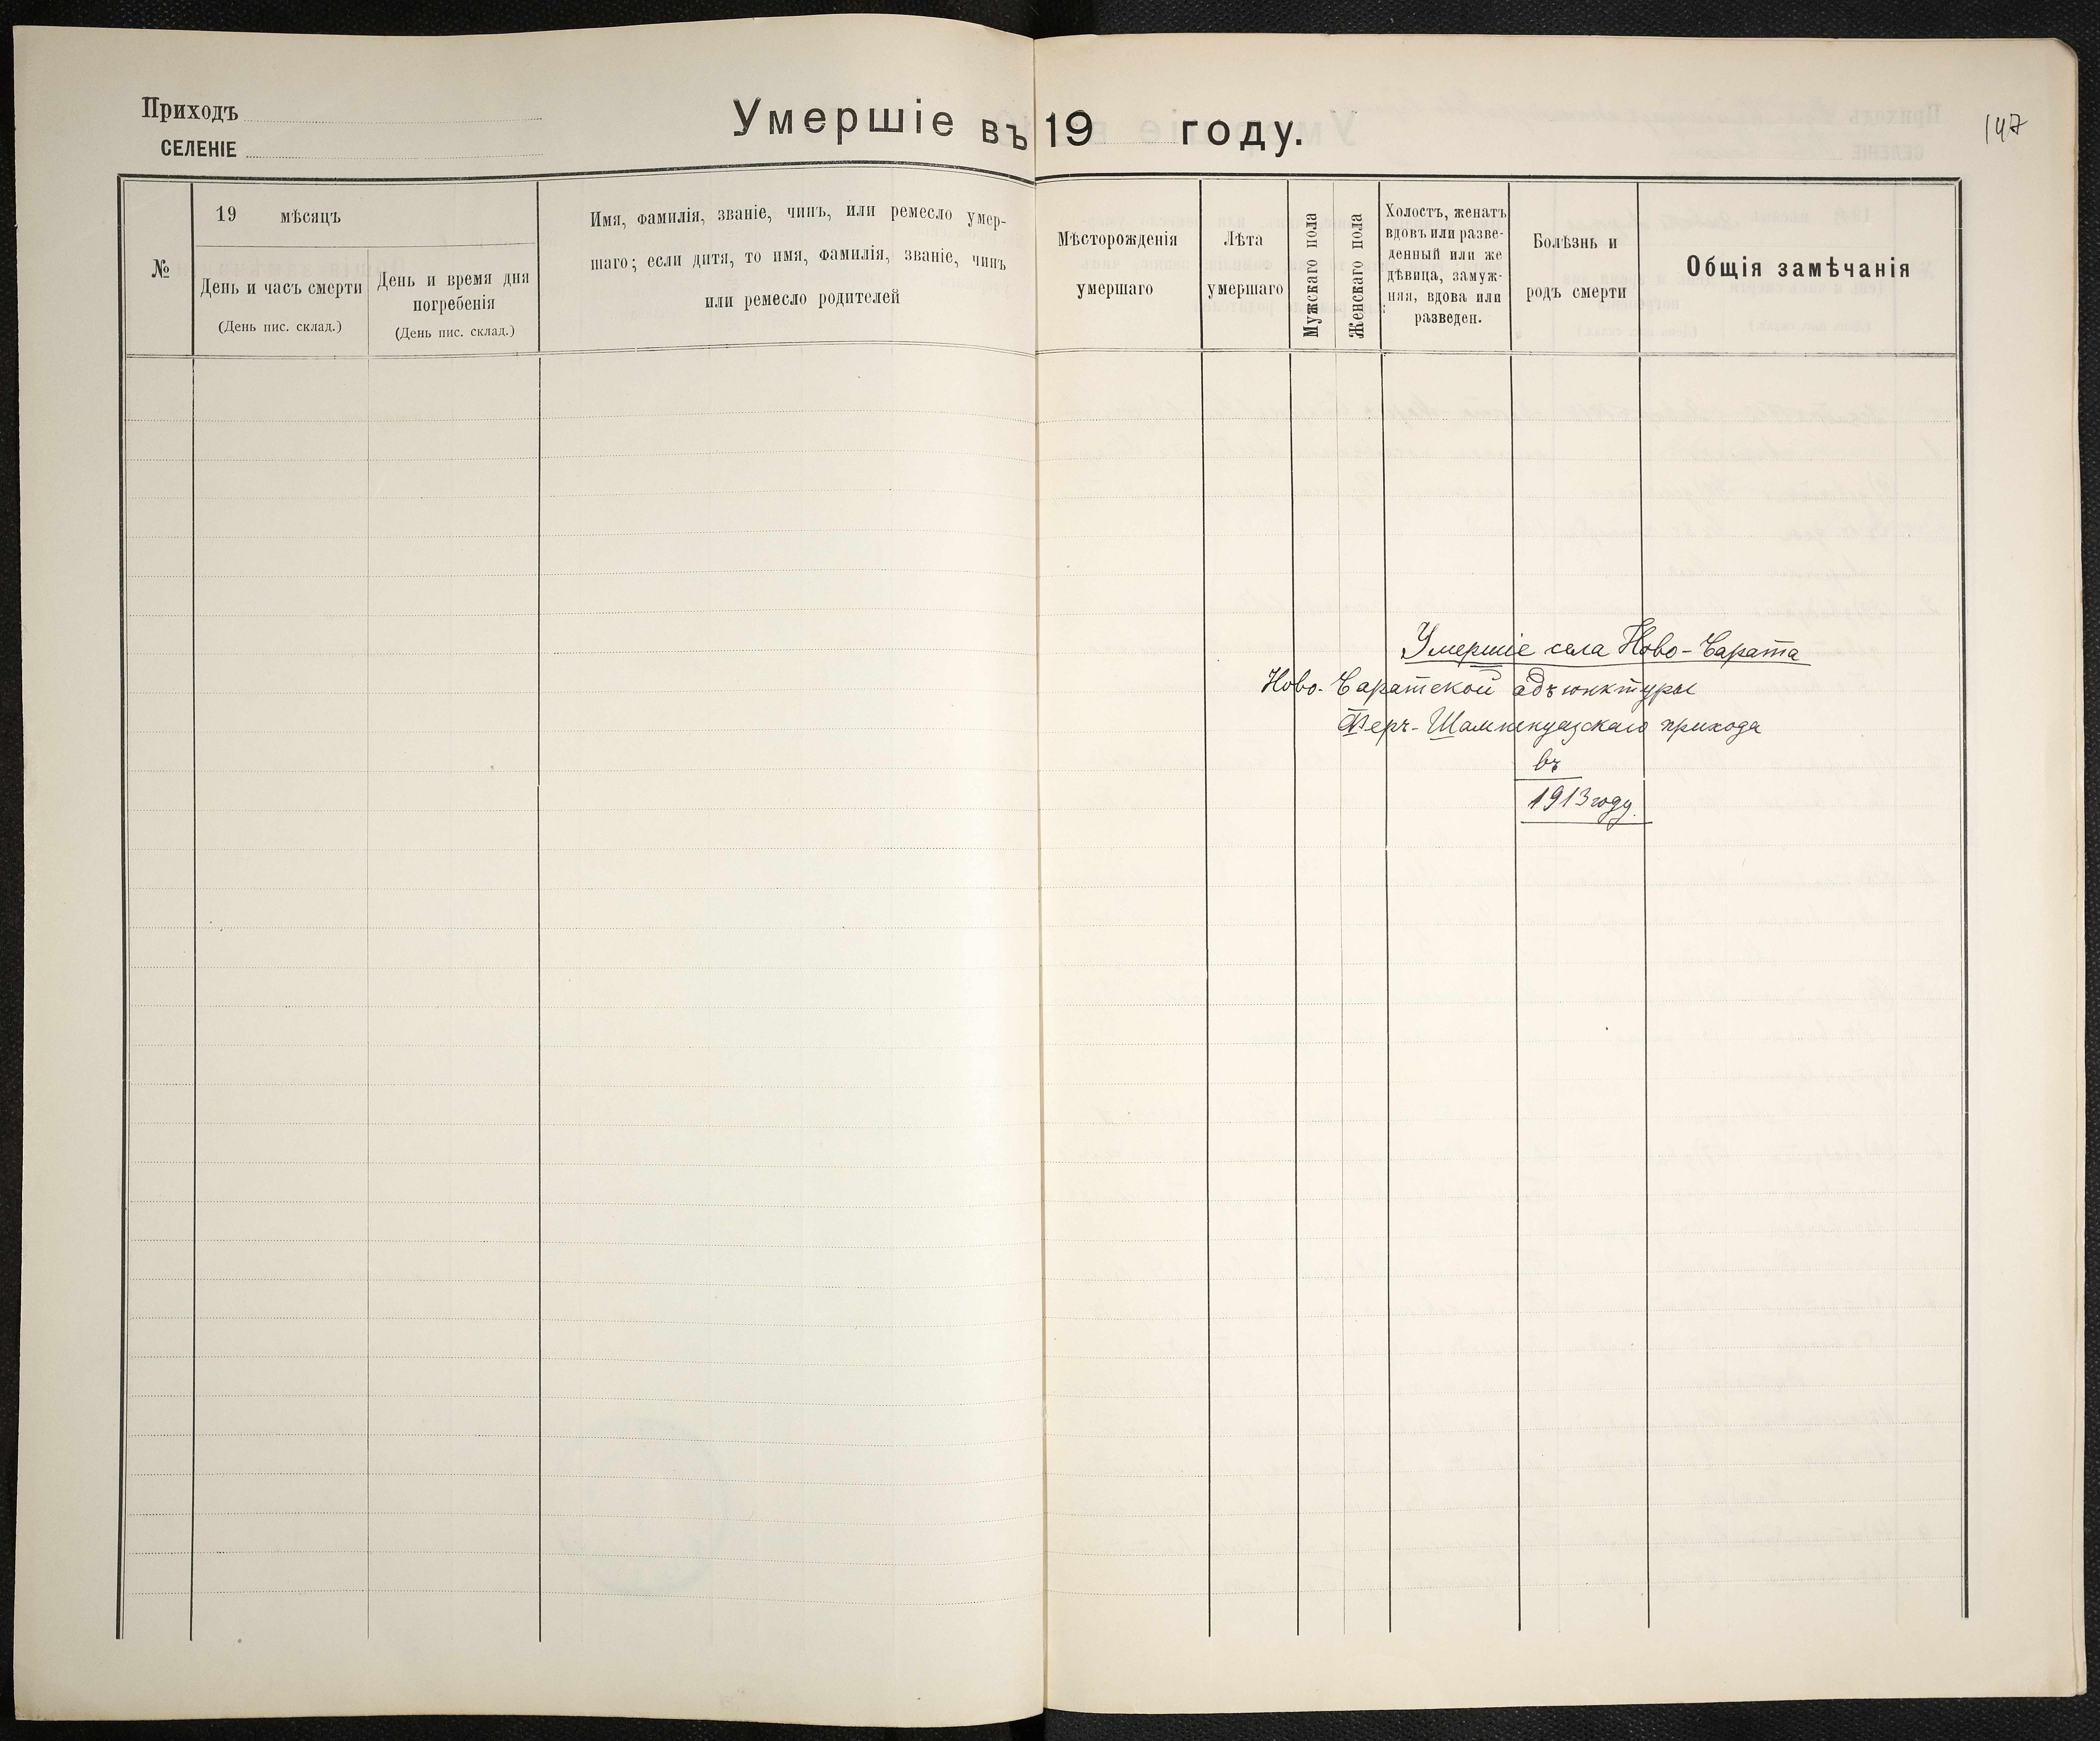 Приходъ
СЕЛЕНІЕ
Умершіе въ 19 году.
147
№
19 мѣсяцъ
День и часъ смерти
(День пис. склад.)
День и время дня
погребенія
(День пис. склад.)
Имя, фамилія, званіе, чинъ, или ремесло умер-
шаго; если дитя, то имя, фамилія, званіе, чинъ
или ремесло родителей
Мѣсторожденія
умершаго
Лѣта
умершаго
Мужскаго пола
Женскаго пола
Холостъ, женатъ
вдовъ или разве-
денный или же
дѣвица, замуж-
няя, вдова или
разведен.
Болѣзнь и
родъ смерти
Общія замѣчанія
Умершіе села Ново-Сарата
Ново-Саратской адъюнктуры
Феръ-Шампенуазскаго прихода
въ
1913 году.